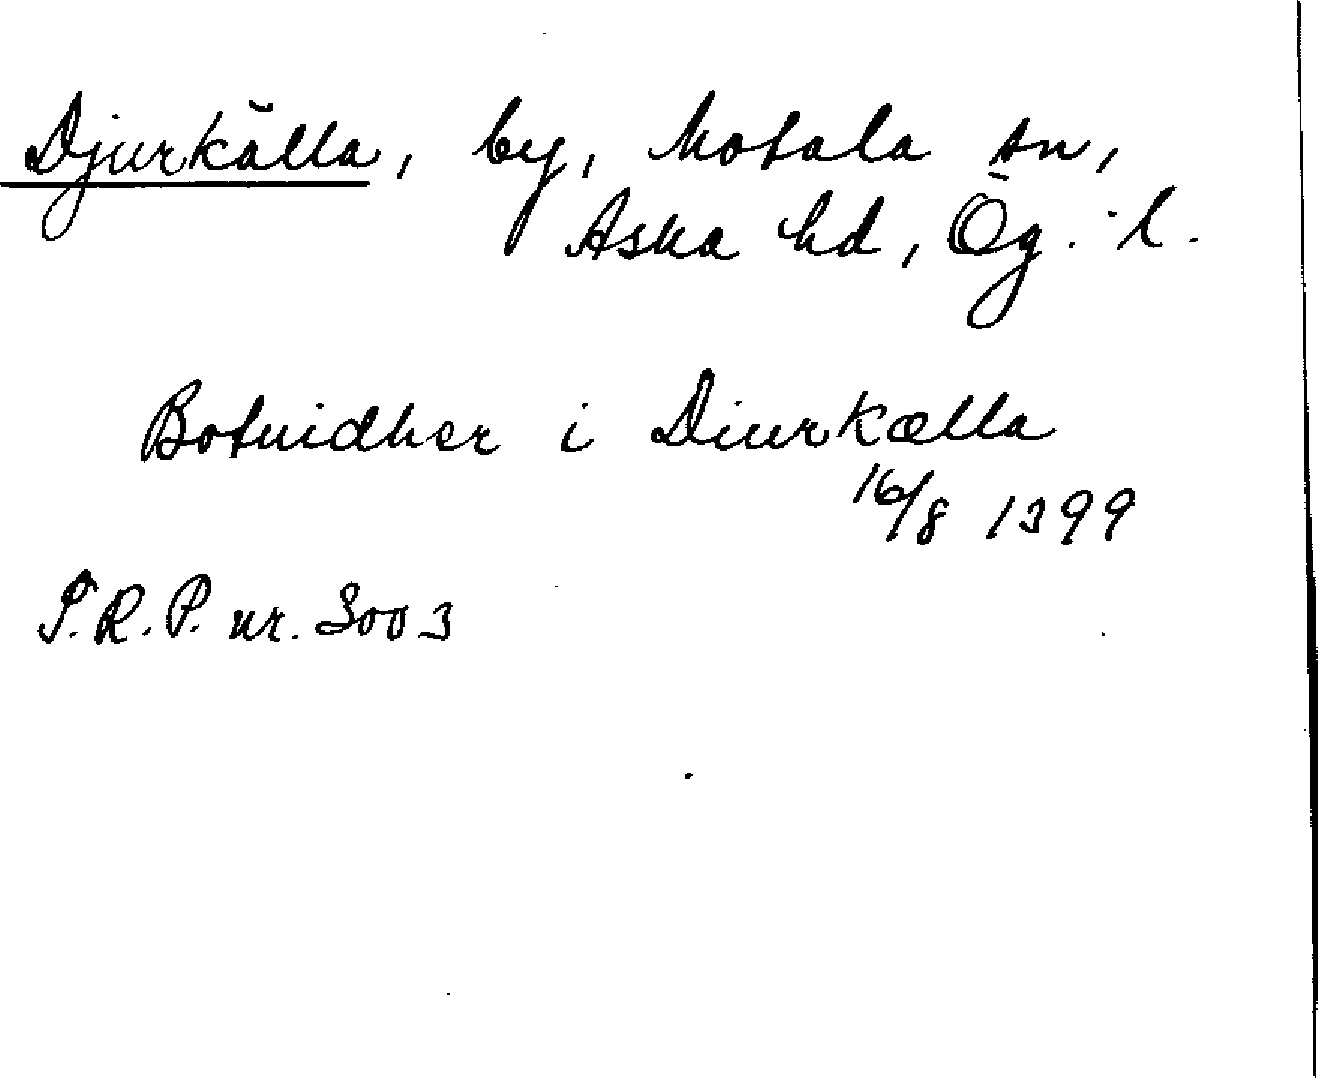 Djurkälla, by, Motala sn,
Aska hd, Ög. l.
Botuidher i Diurkælla
16/8 1399
S.R.P. nr. 3003